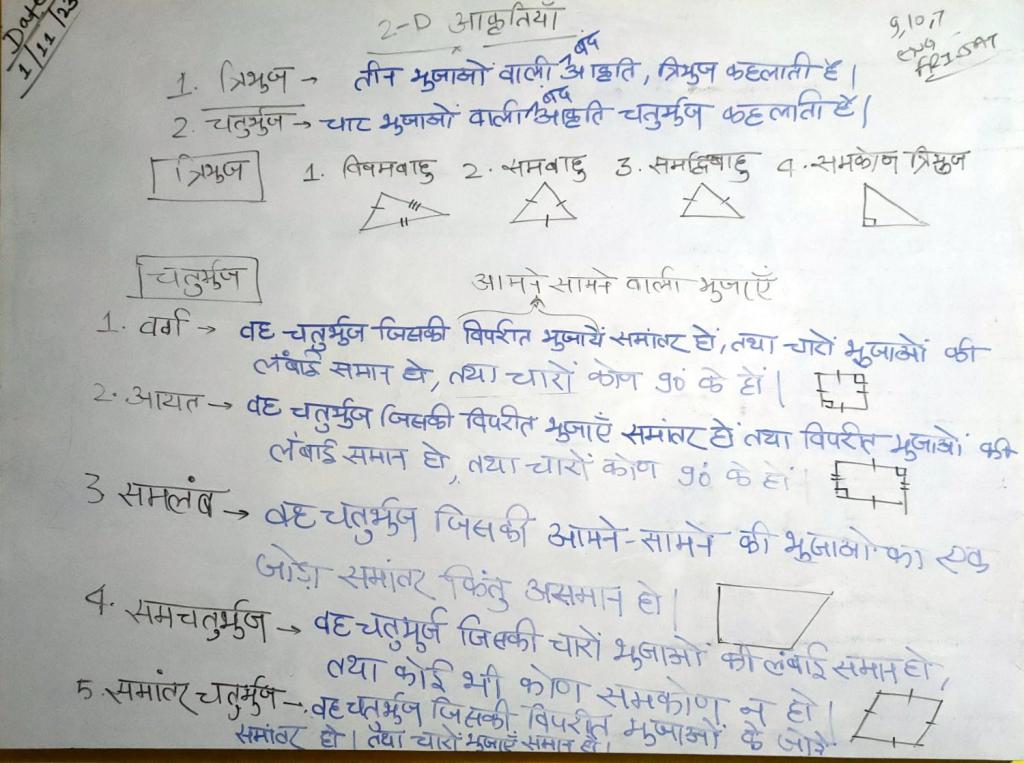 Date
1/11/23
2-D आकृतियाँ
9,10,7
1. त्रिभुज → तीन भुजाओं वाली बंद आकृति, त्रिभुज कहलाती है।
2. चतुर्भुज → चार भुजाओं वाली बंद आकृति चतुर्भुज कहलाती है।
त्रिभुज 1. विषमबाहु 2. समबाहु 3. समद्विबाहु 4. समकोण त्रिभुज
चतुर्भुज
आमने सामने वाली भुजाएँ
1. वर्ग → वह चतुर्भुज जिसकी विपरीत भुजायें समांतर हों, तथा चारों भुजाओं की
लंबाई समान हो, तथा चारों कोण 90° के हों।
2. आयत → वह चतुर्भुज जिसकी विपरीत भुजाएँ समांतर हों तथा विपरीत भुजाओं की
लंबाई समान हो, तथा चारों कोण 90° के हों।
3 समलंब → वह चतुर्भुज जिसकी आमने-सामने की भुजाओं का एक
जोड़ा समांतर किंतु असमान हो।
4. समचतुर्भुज → वह चतुर्भुज जिसकी चारों भुजाओं की लंबाई समान हो,
तथा कोई भी कोण समकोण न हो।
5. समांतर चतुर्भुज → वह चतुर्भुज जिसकी विपरीत भुजाओं के जोड़े
समांतर हो। तथा चारों भुजाएँ समान हों।